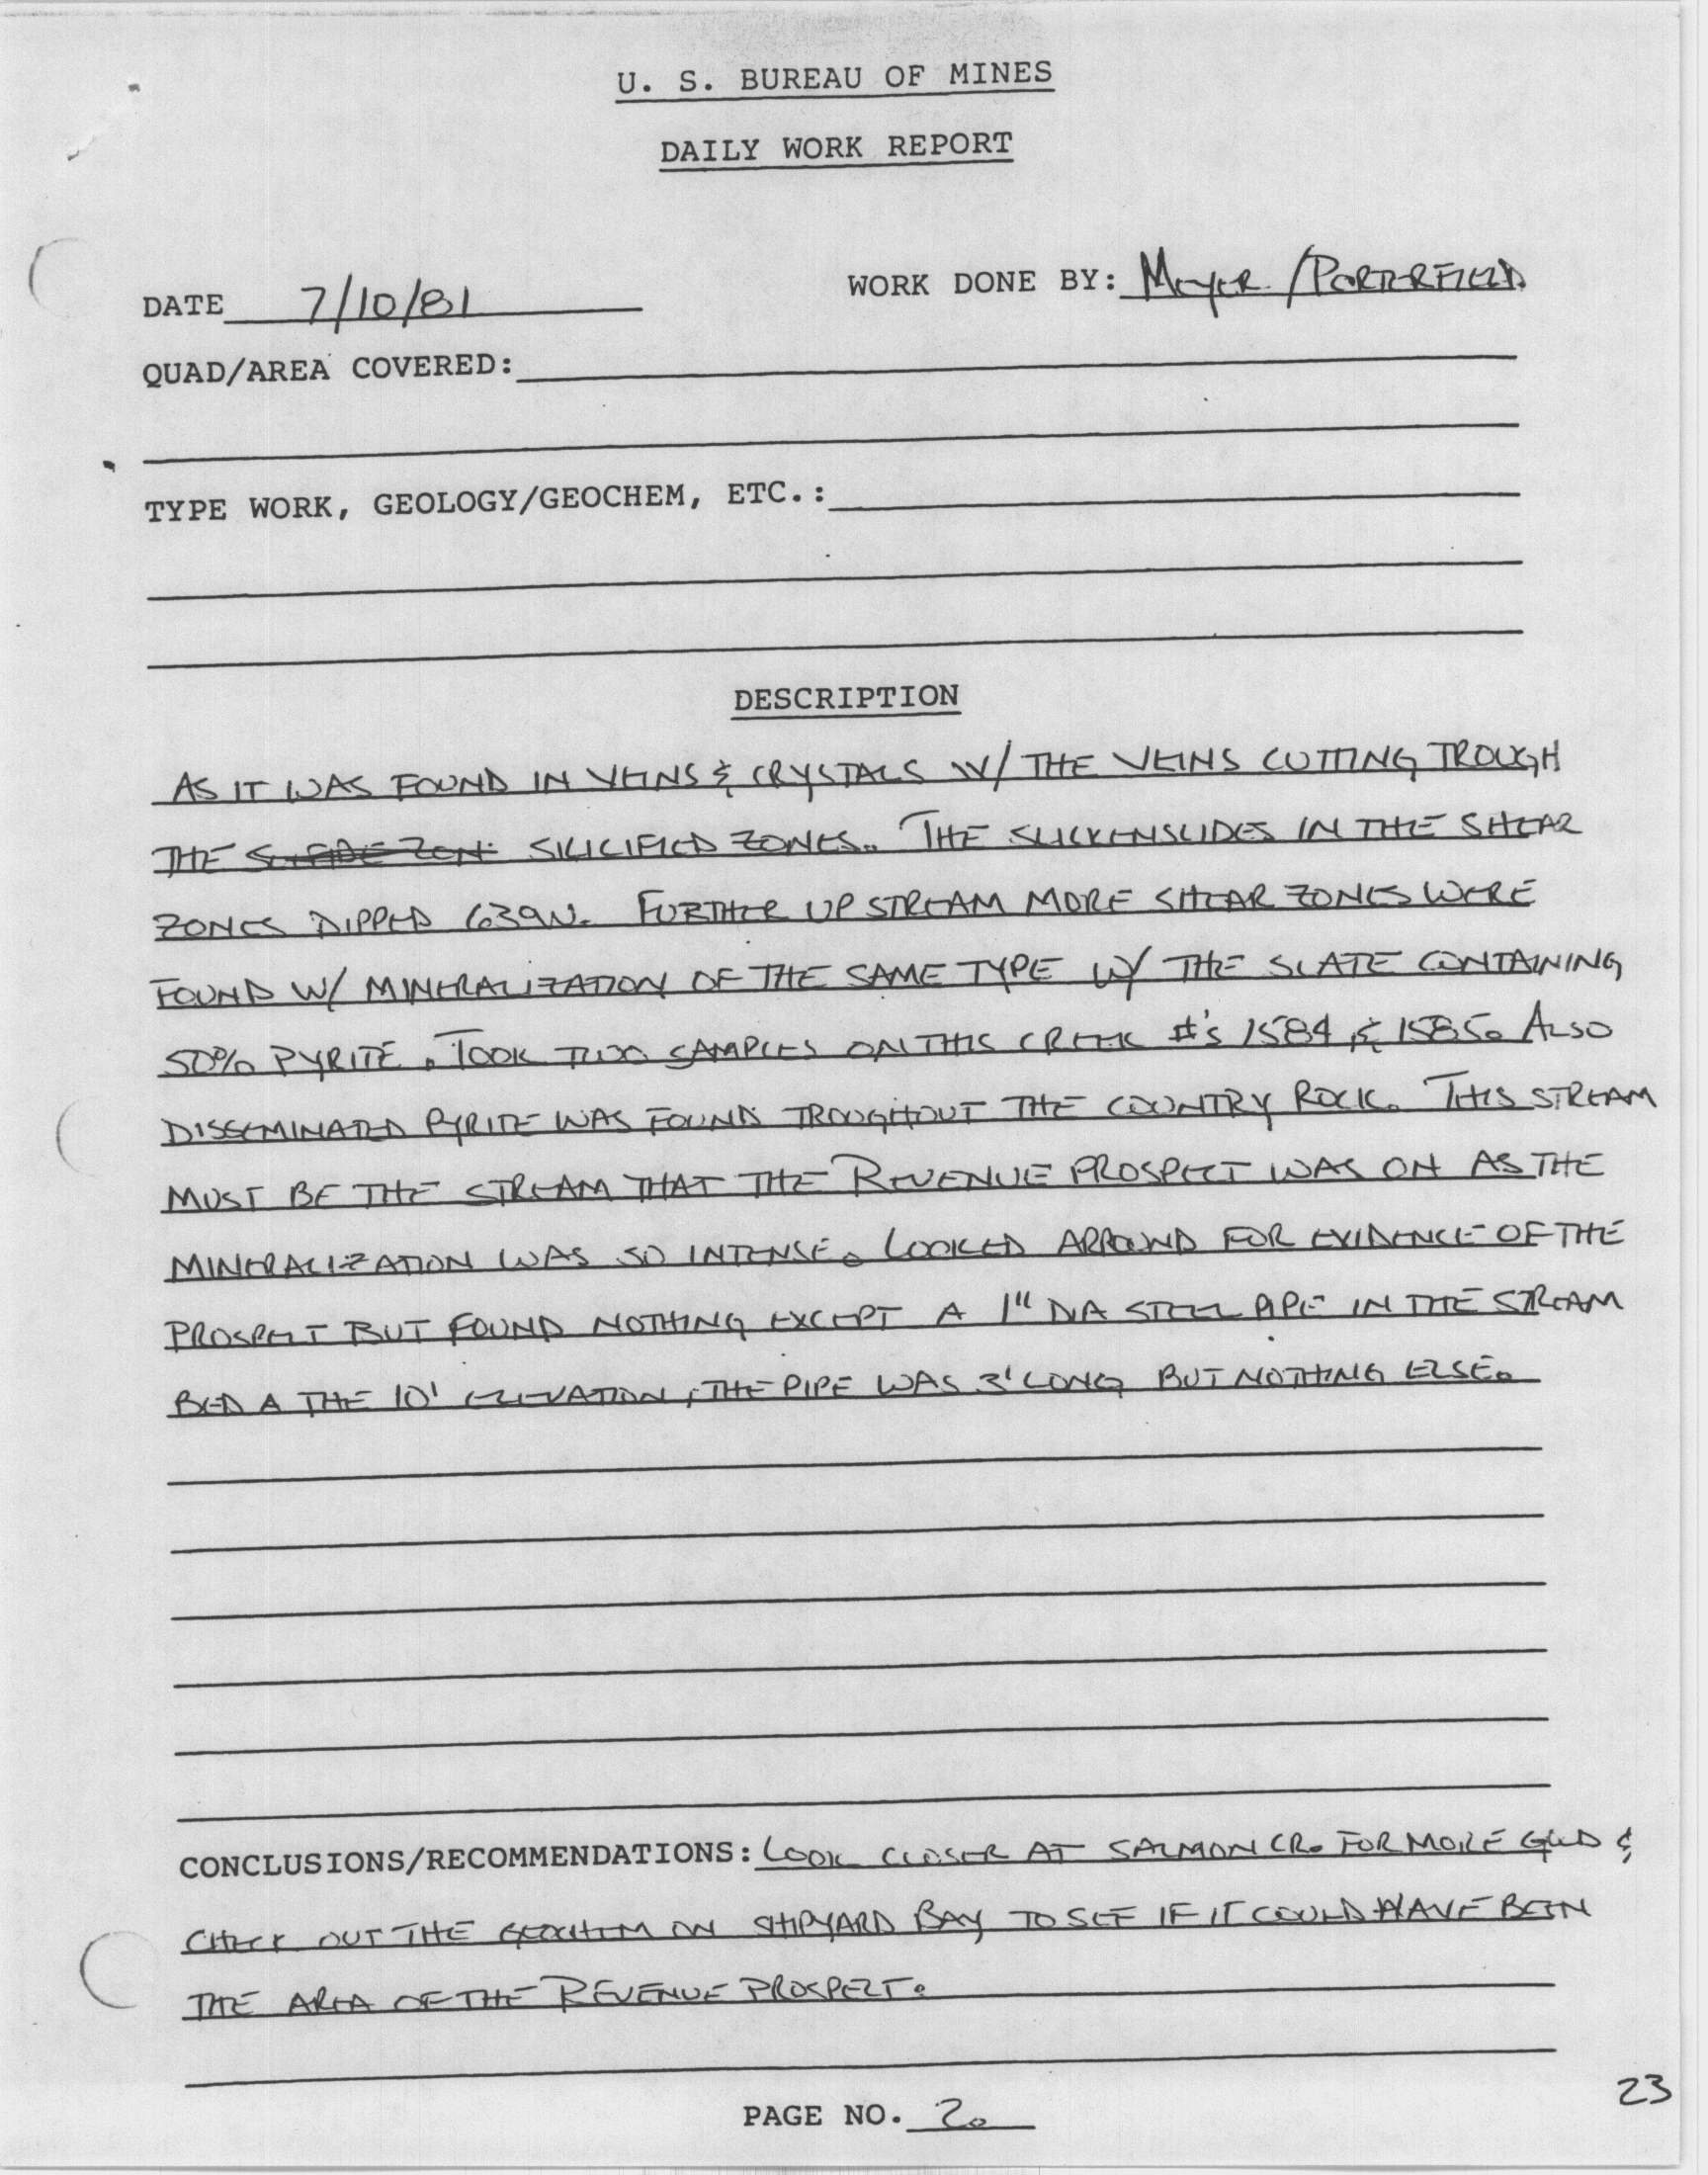 U. S. BUREAU OF MINES
DAILY WORK REPORT
DATE 7/10/81 WORK DONE BY: MEYER / PORTERFIELD
QUAD/AREA COVERED:
TYPE WORK, GEOLOGY/GEOCHEM, ETC.:
DESCRIPTION
AS IT WAS FOUND IN VEINS & CRYSTALS W/ THE VEINS CUTTING TROUGH
THE SILICIFIED ZONES. THE SLICKENSLIDES IN THE SHEAR
ZONES DIPPED 639W. FURTHER UP STREAM MORE SHEAR ZONES WERE
FOUND W/ MINERALIZATION OF THE SAME TYPE W/ THE SLATE CONTAINING
50% PYRITE. TOOK TWO SAMPLES ON THIS CREEK #'s 1584 & 1585. ALSO
DISSEMINATED PYRITE WAS FOUND TROUGHOUT THE COUNTRY ROCK. THIS STREAM
MUST BE THE STREAM THAT THE REVENUE PROSPECT WAS ON AS THE
MINERALIZATION WAS SO INTENSE. LOOKED ARROUND FOR EVIDENCE OF THE
PROSPECT BUT FOUND NOTHING EXCEPT A 1" DIA STEEL PIPE IN THE STREAM
BED A THE 10' ELEVATION, THE PIPE WAS 3' LONG BUT NOTHING ELSE.
CONCLUSIONS/RECOMMENDATIONS: LOOK CLOSER AT SALMON CR. FOR MORE GOLD &
CHECK OUT THE GEOCHEM ON SHIPYARD BAY TO SEE IF IT COULD HAVE BEEN
THE AREA OF THE REVENUE PROSPECT.
PAGE NO. 2.
23